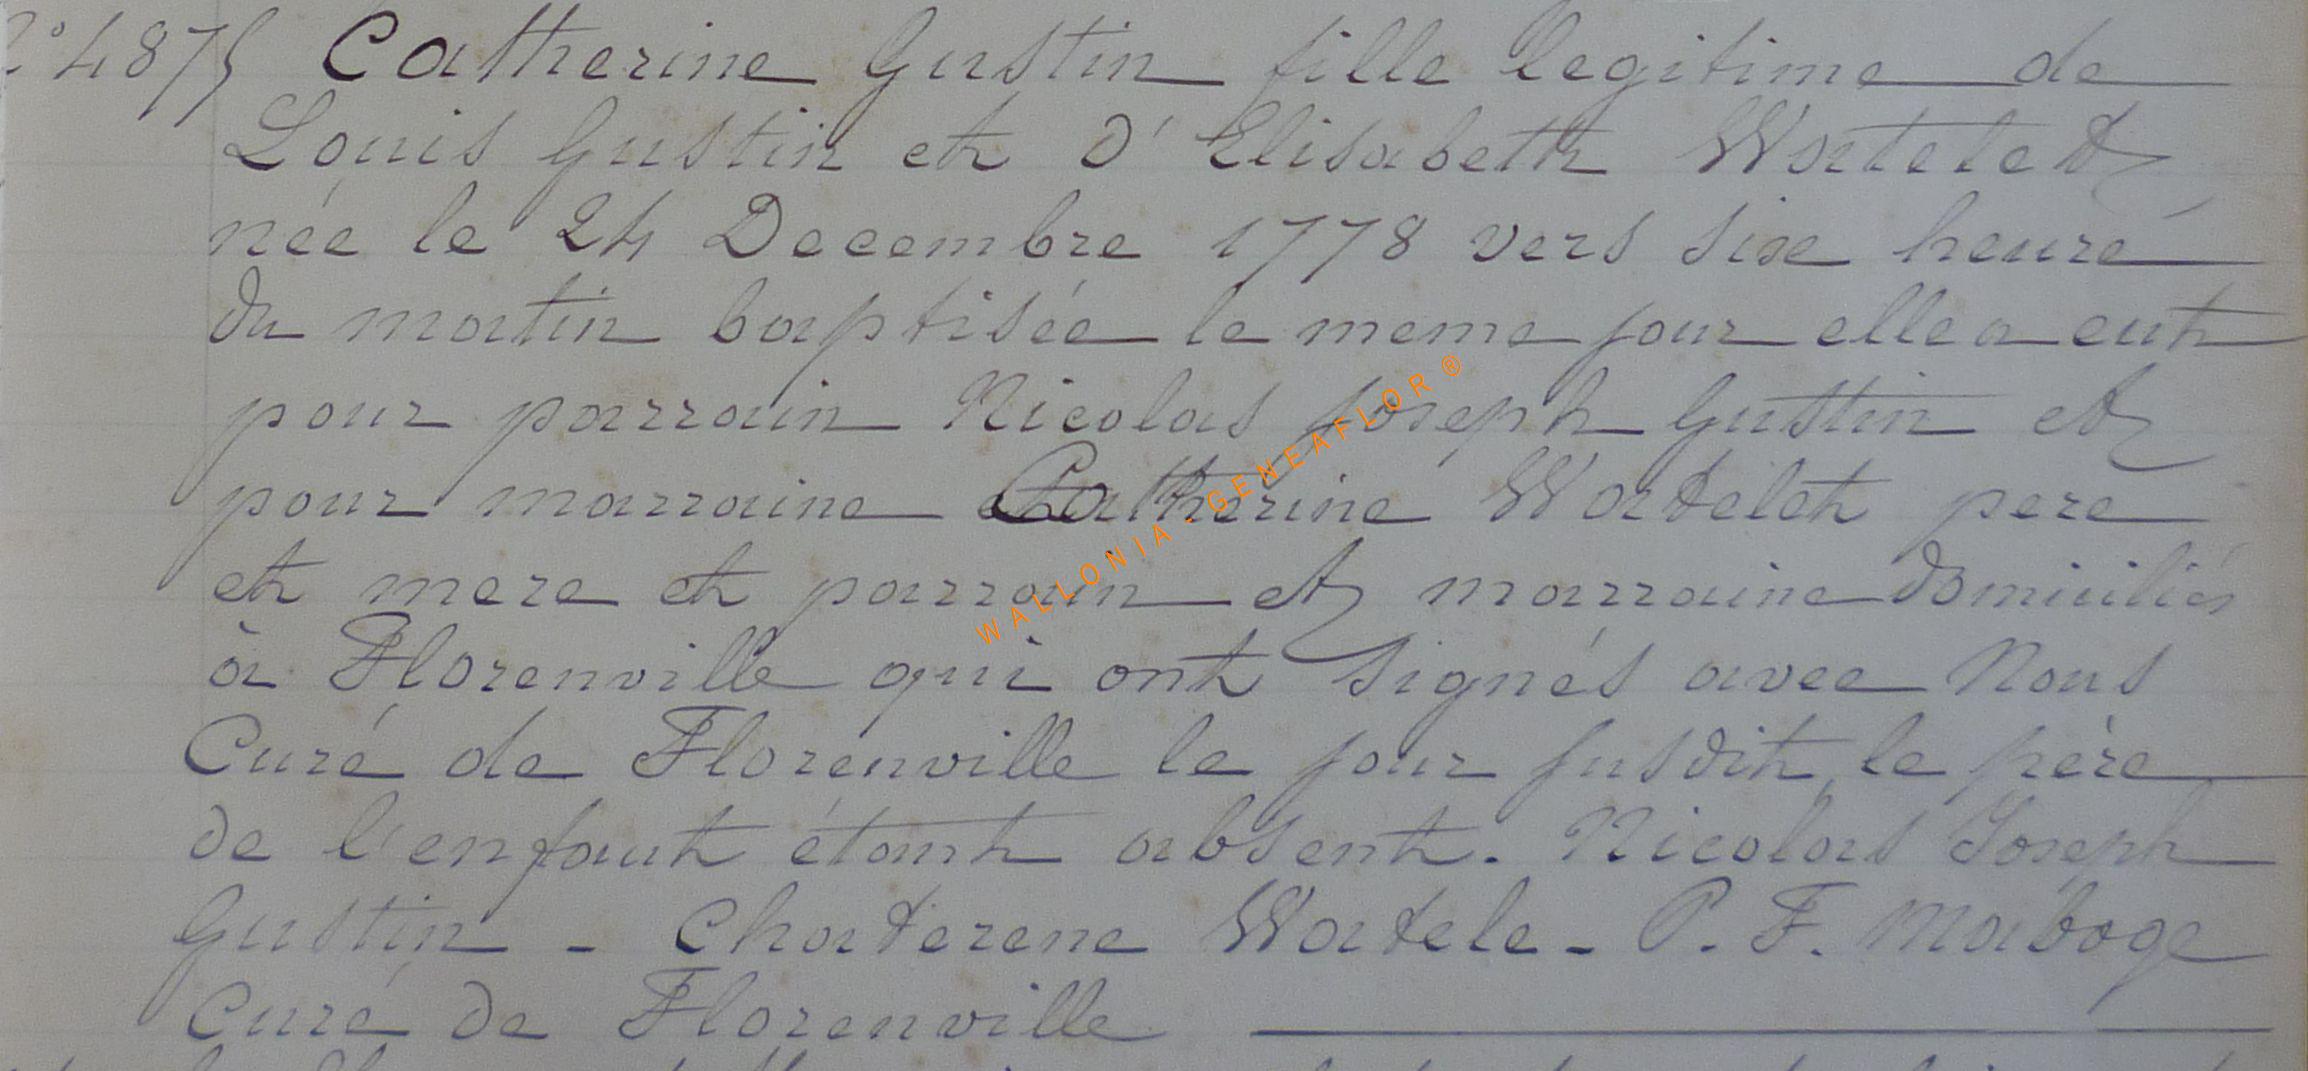 N° 4875 Catherine Gustin fille legitime de
Louis Gustin et d'Elisabeth Watelet
née le 24 Decembre 1778 vers sixe heure
du matin baptisée le meme jour elle a eut
pour parrain Nicolas Joseph Gustin et
pour marraine Catherine Watelet pere
et mere et parrain et marraine domiciliés
à Florenville qui ont signés avec Nous
Curé de Florenville le jour susdit, le père
de l'enfant étant absent. Nicolas Joseph
Gustin - Chaterene Watele - P. F. Maboge
Curé de Florenville
WALLONIA - GENEAFLOR ®